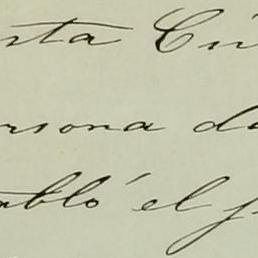 sta Ciu
ersona de
abló el p